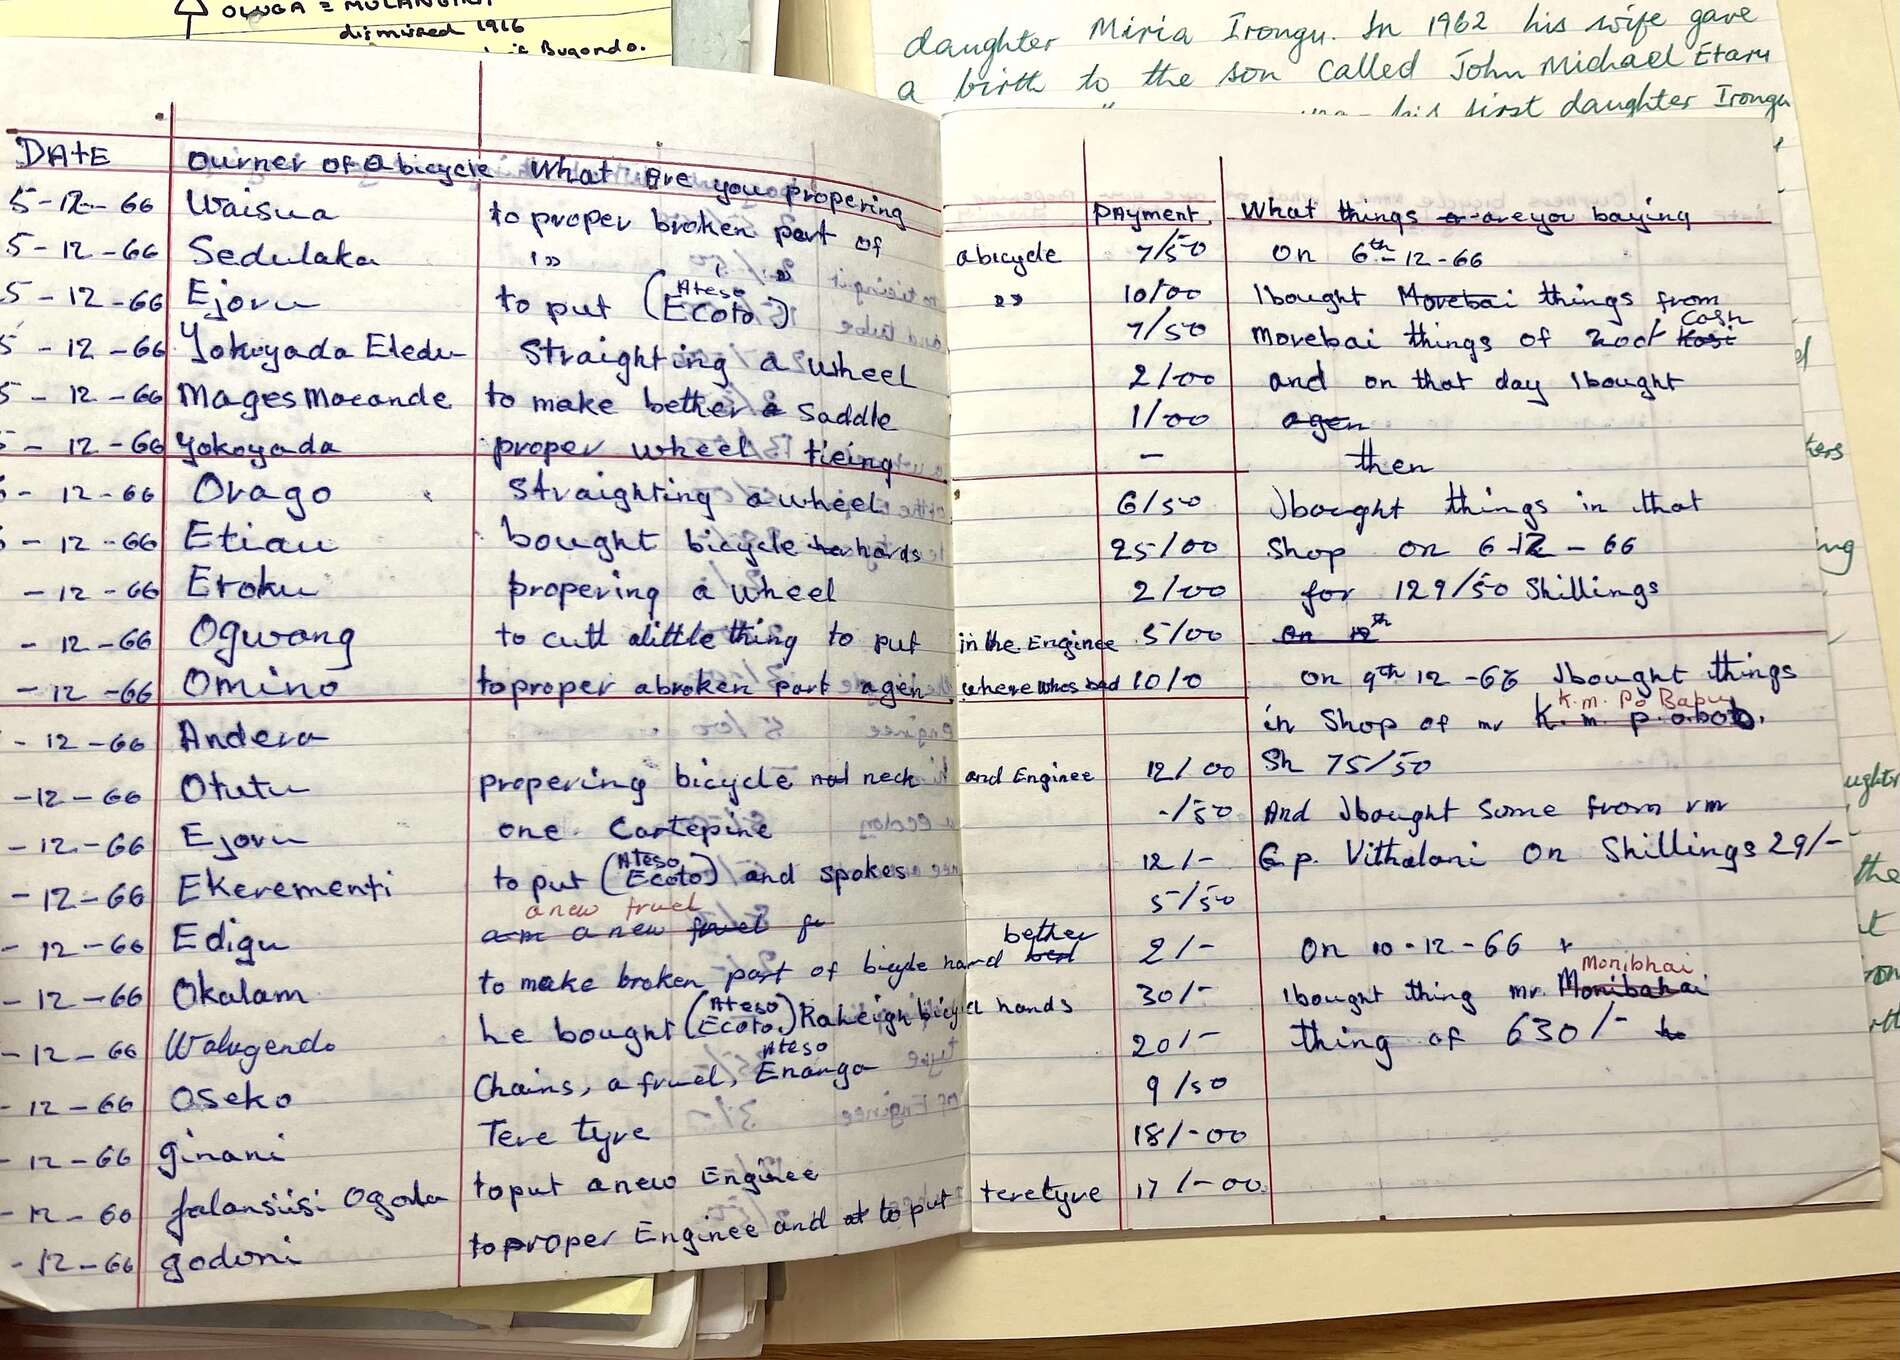 OLUGA = MULANGIRA
dismissed 1916
Bugondo.
daughter Miria Irongu. In 1962 his wife gave
a birth to the son called John Michael Etaru
his first daughter Irongu
DATE ourner of a bicycle What are you propering
5-12-66 Waisua to proper broken part of
5-12-66 Sedulaka " "
5-12-66 Ejoru to put (Ateso Ecoto)
5-12-66 Yokoyada Eledu Straighting a wheel
5-12-66 Mages Macande to make bether a saddle
5-12-66 Yokoyada proper wheel tieing
-12-66 Orago Straighting a wheel
-12-66 Etiau bought bicycle hards
-12-66 Eroku propering a wheel
-12-66 Ogwang to cutt alittle thing to put
-12-66 Omino to proper abroken part agen
-12-66 Andera
-12-66 Otutu propering bicycle nod neck
-12-66 Ejoru one Cartepine
-12-66 Ekerementi to put (Ateso Ecoto) and spokes
a new fruel
-12-66 Edigu am a new fruel
-12-66 Okalam to make broken part of bicycle hand
-12-66 Walugendo he bought (Ateso Ecoto.) Raheigh bicycl
-12-66 Oseko Chains, a fruel, Ateso Enanga
-12-66 ginani Tere tyre
-12-60 falansiisi Ogoda to put a new Enginee
-12-66 godoni to proper Enginee and at to put
PAyment What things or are you baying
abicycle 7/50 on 6th-12-66
" 10/00 I bought Morebai things from
7/50 morebai things of 200/ cash Kasi
2/00 and on that day I bought
1/00 agen
— then
6/50 I bought things in that
25/00 Shop on 6-12-66
2/00 for 129/50 Shillings
in the Enginee 5/00 on 12th
where whes bad 10/0 on 9th 12-66 I bought things
K.m. Po Bapu
in Shop of mr K. m. p.
and Enginee 12/00 Sh 75/50
-/50 And I bought Some from rm
12/- G p. Vithalani On Shillings 29/-
5/50
bether
bed 2/- On 10-12-66
monibhai
30/- I bought thing mr. Monibahai
a hands
20/- thing of 630/-
9/50
18/-00
teretyre 17/-00
ters
ng
ughter
the